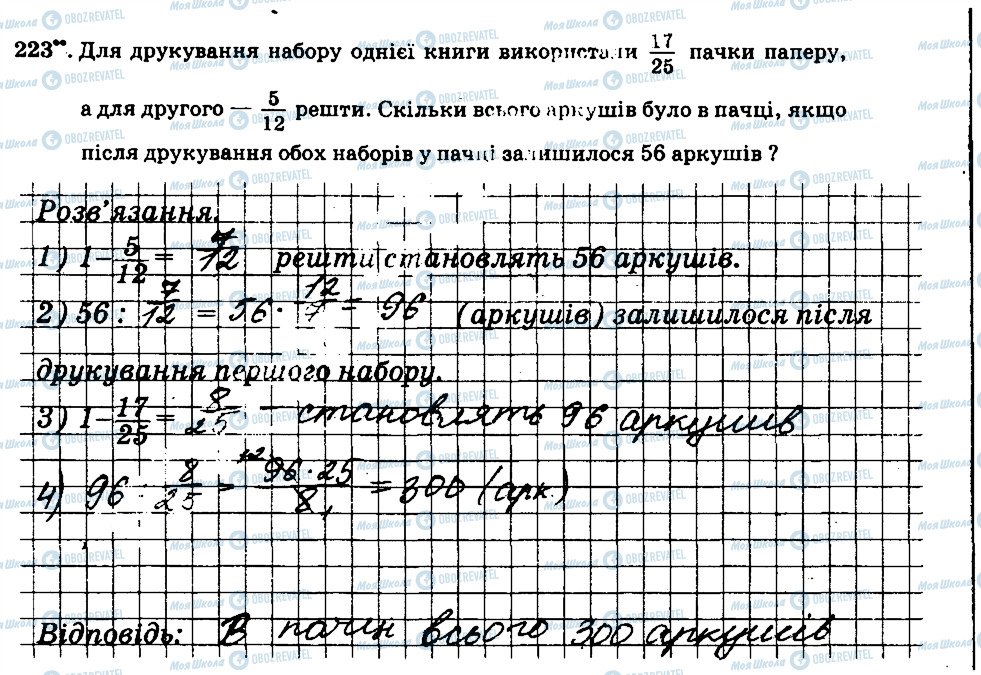 223**. Для друкування набору однієї книги використали 17/25 пачки паперу,
а для другого — 5/12 решти. Скільки всього аркушів було в пачці, якщо
після друкування обох наборів у пачці залишилося 56 аркушів ?
Розв’язання.
1) 1 - 5/12 = 7/12 решти становлять 56 аркушів.
2) 56 : 7/12 = 56 · 12/7 = 96 (аркушів) залишилося після
друкування першого набору.
3) 1 - 17/25 = 8/25 - становлять 96 аркушів
4) 96 : 8/25 = 96 · 25 / 8 = 300 (арк)
Відповідь: В пачці всього 300 аркушів